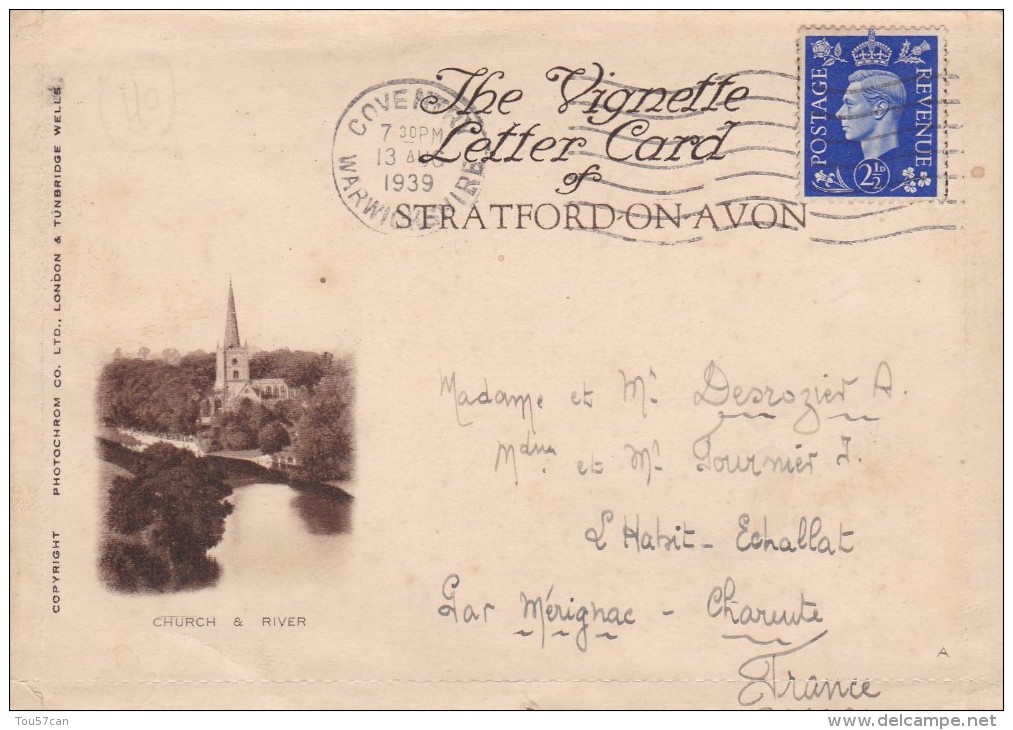 The Vignette
Letter Card
of
STRATFORD-ON-AVON
COVENTRY
7 30PM
13 AUG
1939
WARWICKSHIRE
POSTAGE
REVENUE
2½D
COPYRIGHT PHOTOCHROM CO. LTD., LONDON & TUNBRIDGE WELLS.
CHURCH & RIVER
Madame et Mr Desrozier A.
Mdme et Mr Fournier J.
L'Habit - Echallat
Par Mérignac - Charente
France
A
Tou57can
www.delcampe.net